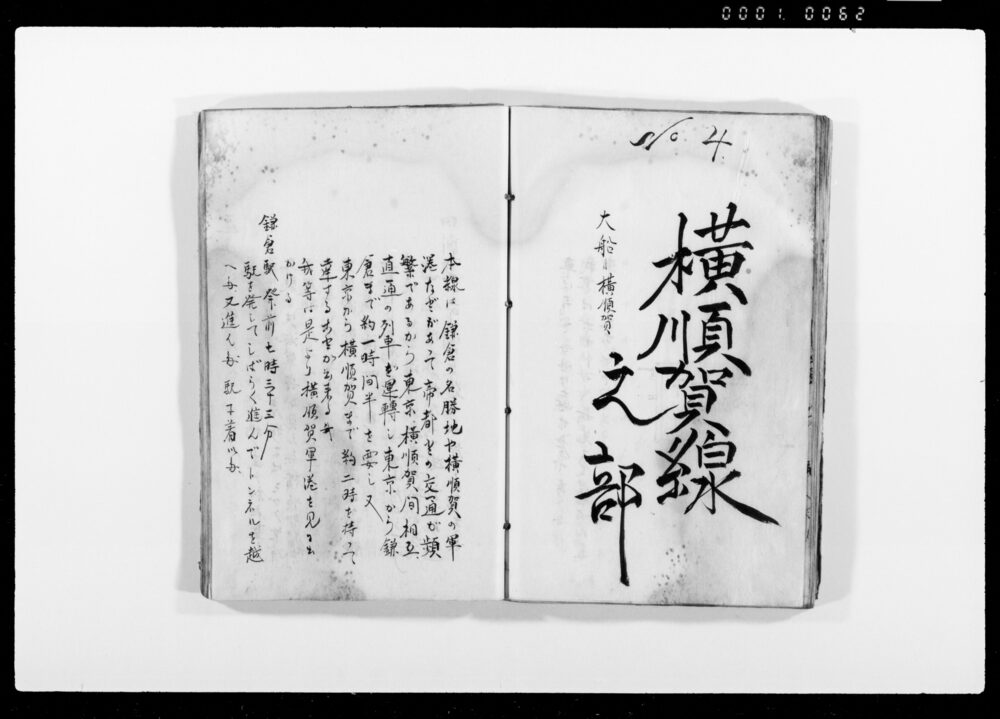 0001. 0062
No. 4
横順賀線
之部
大船 横順賀
本線は鎌倉の名勝地や横順賀の軍
港などがあつて帝都との交通が頻
繁であるから東京、横順賀間相互
直通の列車を運轉し東京から鎌
倉まで約一時間半を要し又
東京から横順賀まで約二時を持つて
達する
我等は是より横順賀軍港を見る
かける
鎌倉駅発前七時三十三分
駅を発してしばらく進んでトンネルを越
へ又進んで駅に着いた